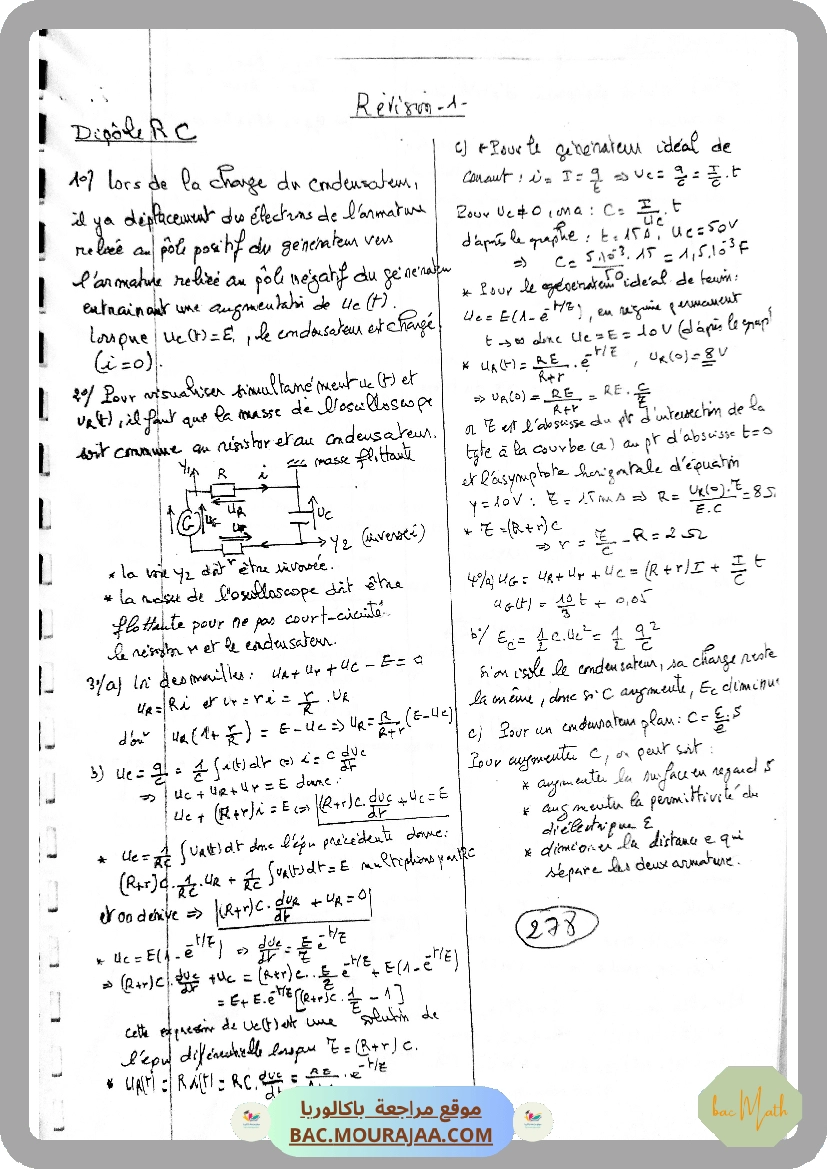 Révision -1-
Dipôle RC
1°/ lors de la charge du condensateur,
il ya déplacement des électrons de l'armature
reliée au pôle positif du générateur vers
l'armature reliée au pôle négatif du générateur
entrainant une augmentation de uc(t).
lorsque uc(t)=E, le condensateur est chargé
(i=0).
2°/ Pour visualiser simultanément uc(t) et
uR(t), il faut que la masse de l'oscilloscope
soit commune au résistor et au condensateur.
Y1 R i masse flottante
G uR uC
r Y2 (inversée)
* la voie Y2 doit être inversée.
* la masse de l'oscilloscope doit être
flottante pour ne pas court-circuité
le résistor r et le condensateur.
3°/a) loi des mailles: uR + ur + uc - E = 0
uR = Ri et ur = ri = r/R . uR
d'où uR(1+ r/R) = E - uc => uR = R/(R+r) (E - uc)
b) uc = q/c = 1/c ∫ i(t) dt <=> i = c duc/dt
=> uc + uR + ur = E donc:
uc + (R+r) i = E <=> (R+r)c. duc/dt + uc = E
* uc = 1/RC ∫ uR(t) dt donc l'équ précédente donne:
(R+r)C. 1/RC. uR + 1/RC ∫ uR(t) dt = E multiplions par RC
et on dérive => (R+r)C. duR/dt + uR = 0
* uc = E(1 - e^-t/τ) => duc/dt = E/τ e^-t/τ
=> (R+r)C. duc/dt + uc = (R+r)C. E/τ e^-t/τ + E(1 - e^-t/τ)
= E + E.e^-t/τ [(R+r)C. 1/τ - 1]
cette expression de uc(t) est une solution de
l'équ différentielle lorsque τ = (R+r)C.
* uR(t) = Ri(t) = RC. duc/dt = RE . e^-t/τ
c) * Pour le générateur idéal de
courant : i = I = q/t => uc = q/c = I/c . t
Pour uc ≠ 0, on a : C = I/uc . t
d'après le graphe : t = 15s, uc = 50V
=> C = 5.10^-3 . 15 / 50 = 1,5.10^-3 F
* Pour le générateur idéal de tension:
uc = E(1 - e^-t/τ), en régime permanent
t → ∞ donc uc = E = 10V (d'après le graph
* uR(t) = RE/(R+r) . e^-t/τ , uR(0) = 8V
=> uR(0) = RE/(R+r) = RE. C/τ
or τ est l'abscisse du pt d'intersection de la
tgte à la courbe (a) au pt d'abscisse t=0
et l'asymptote horizontale d'équation
y = 10V : τ = 15ms => R = uR(0).τ / E.C = 8Ω
* τ = (R+r)C
=> r = τ/C - R = 2Ω
4°/a) uG = uR + ur + uc = (R+r)I + I/C t
uG(t) = 10/3 t + 0,05
b°/ Ec = 1/2 c.uc² = 1/2 q²/c
Si on isole le condensateur, sa charge reste
la même, donc si C augmente, Ec diminue
c) Pour un condensateur plan: C = ε/e . S
Pour augmenter C, on peut soit :
* augmenter la surface en regard S
* augmenter la permittivité du
diélectrique ε
* diminuer la distance e qui
sépare les deux armature.
278
موقع مراجعة باكالوريا
BAC.MOURAJAA.COM
bac Math